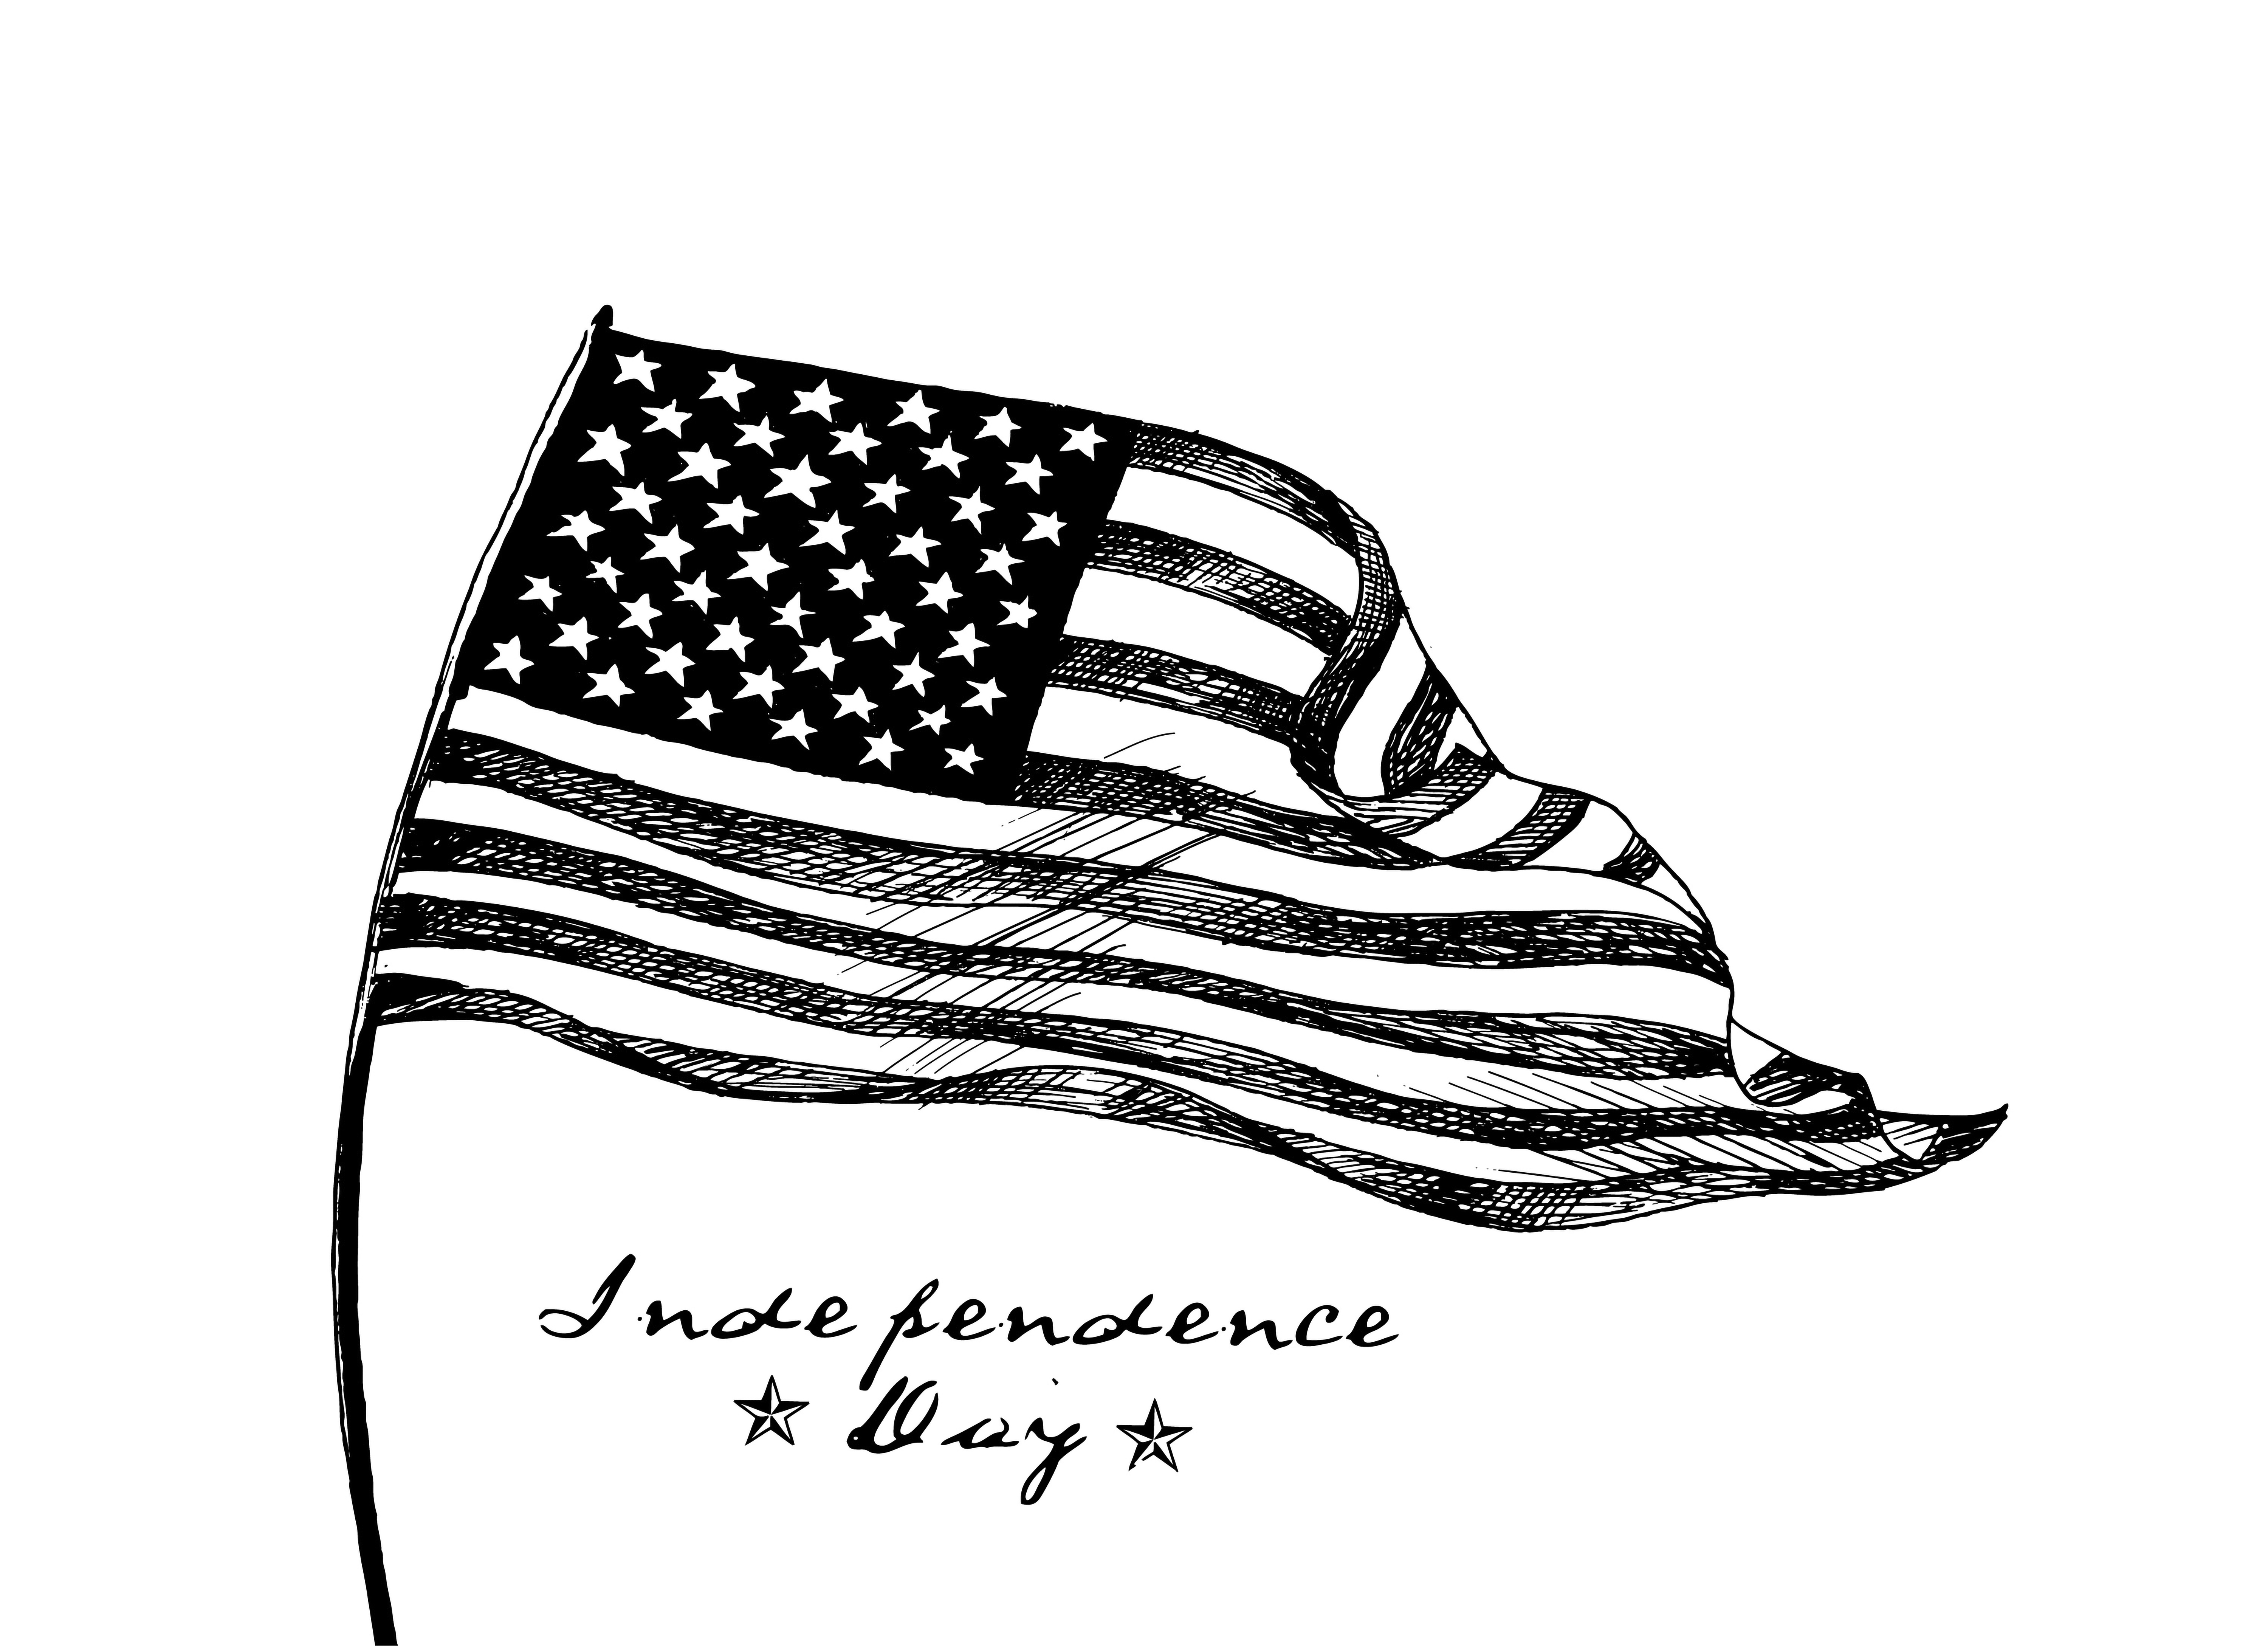 Independence
Day